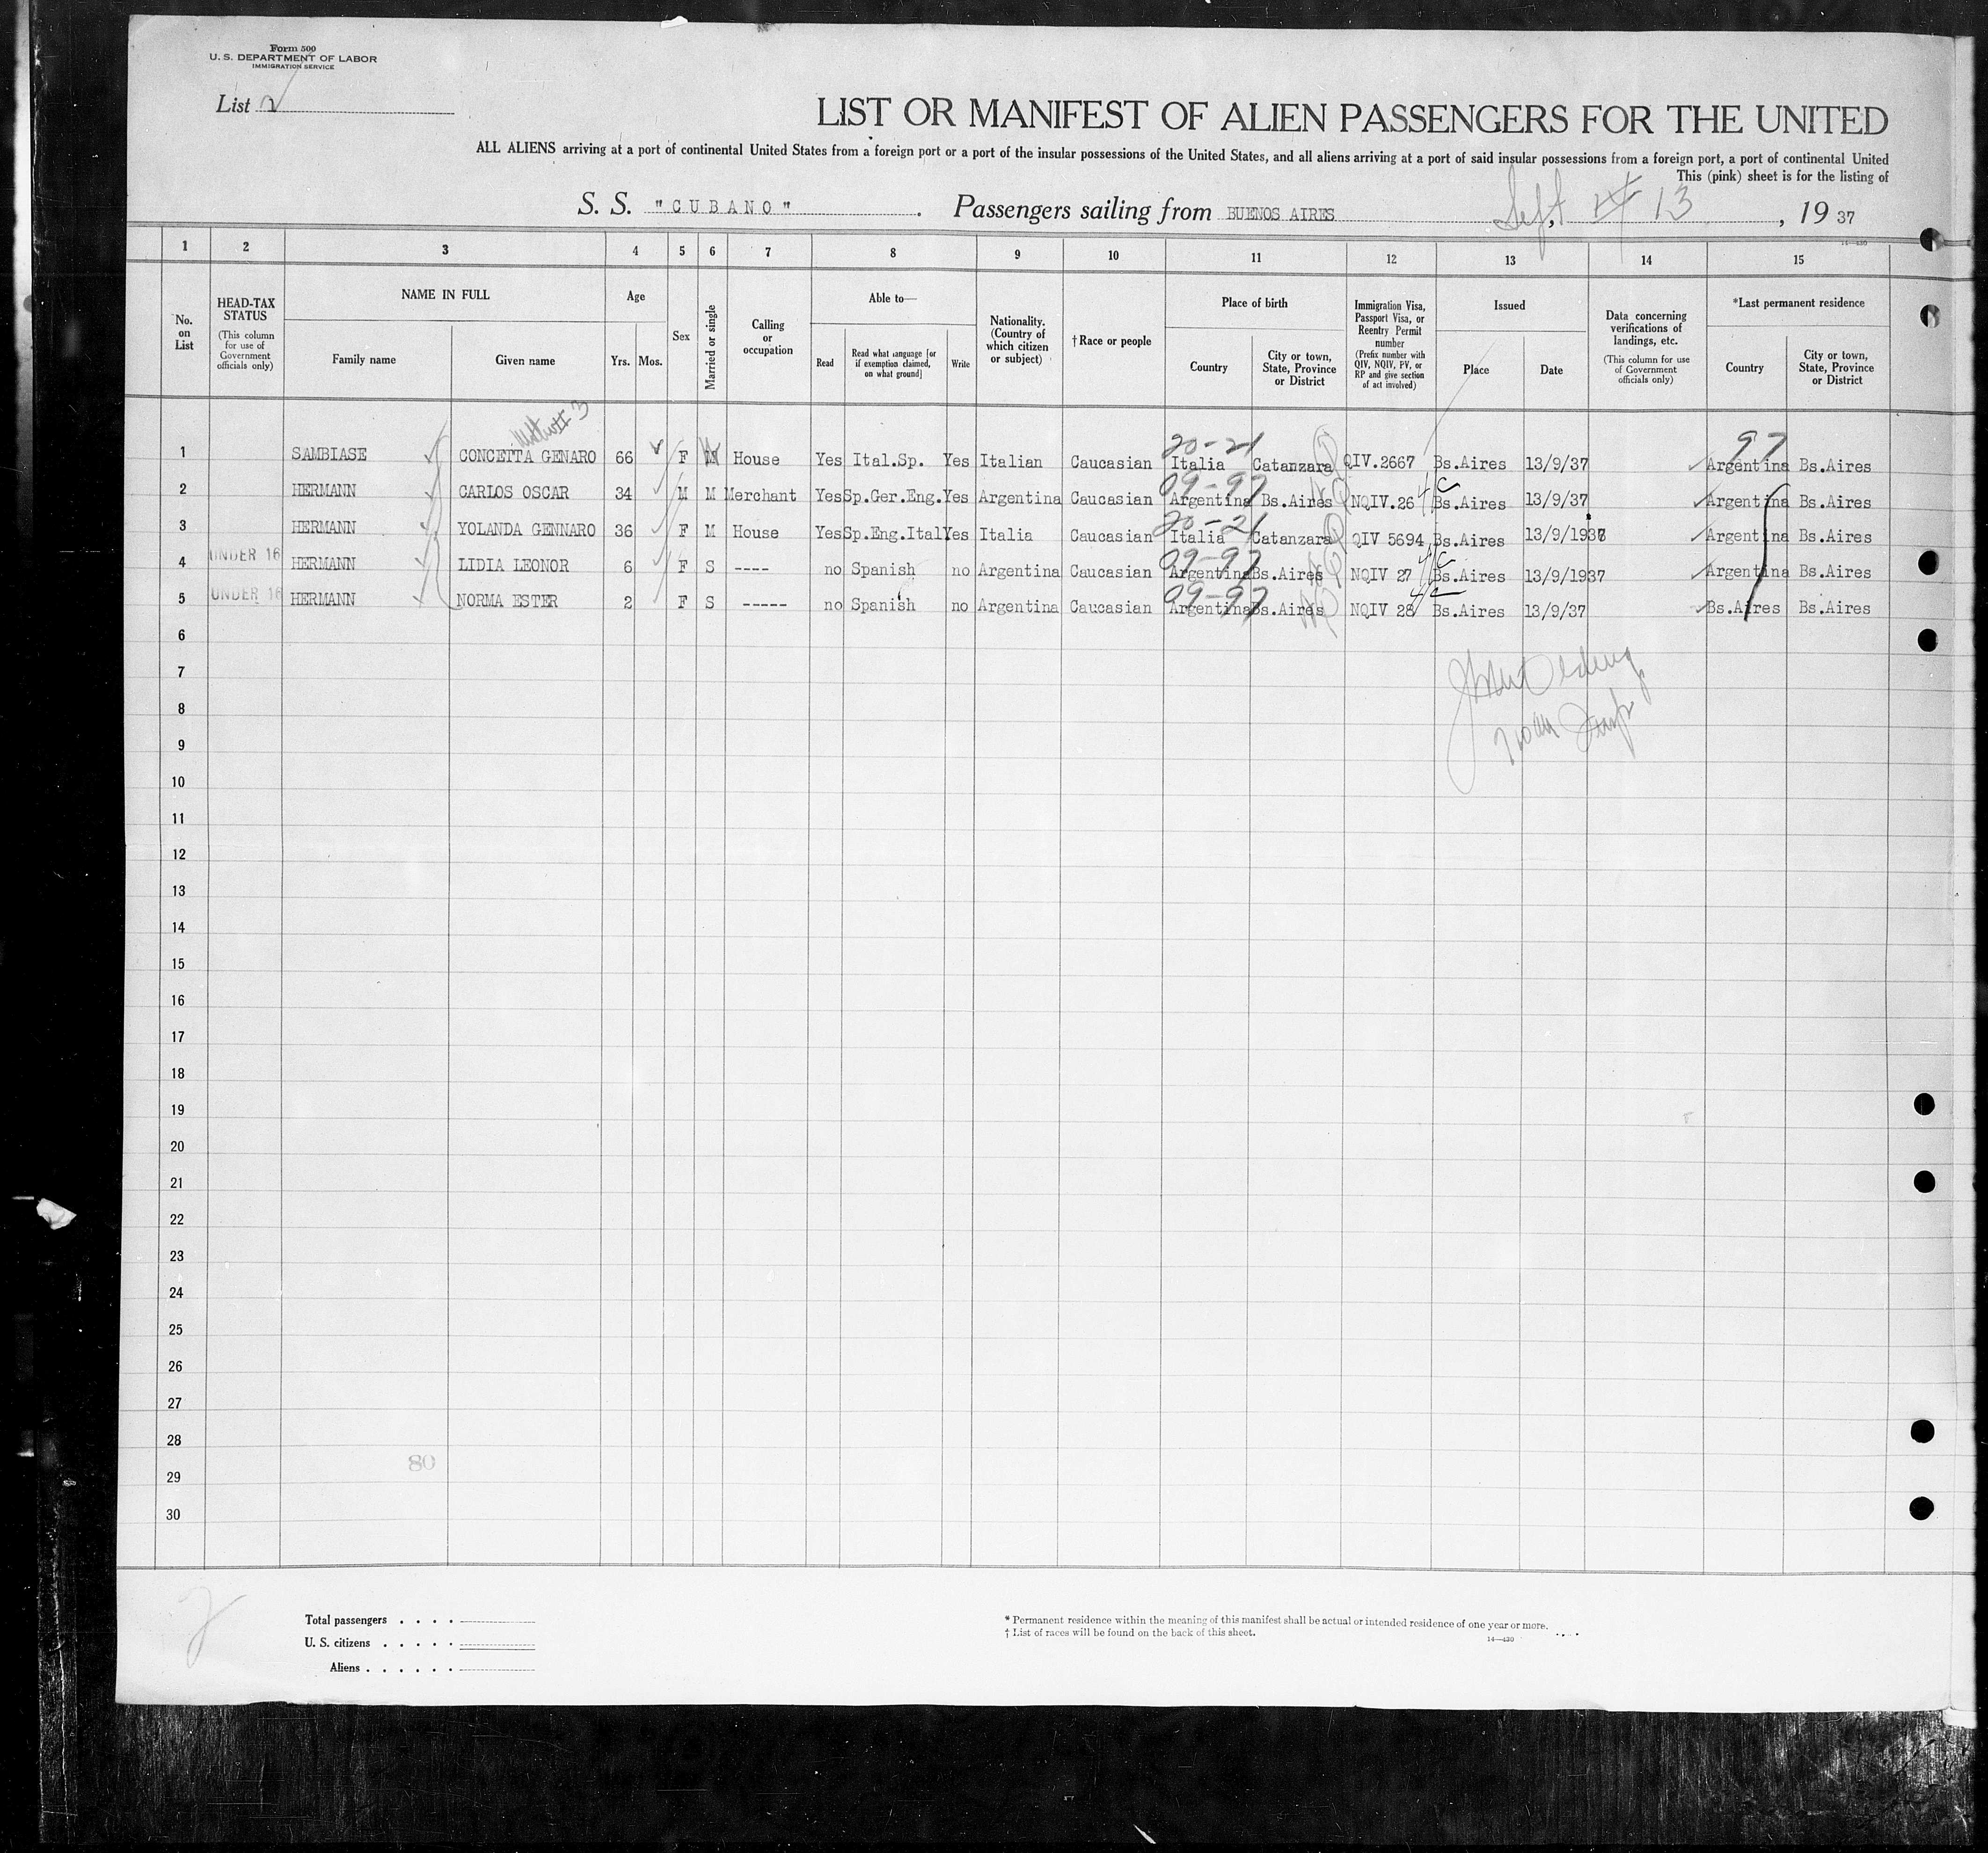 Form 500
U. S. DEPARTMENT OF LABOR
IMMIGRATION SERVICE
List 2
LIST OR MANIFEST OF ALIEN PASSENGERS FOR THE UNITED
ALL ALIENS arriving at a port of continental United States from a foreign port or a port of the insular possessions of the United States, and all aliens arriving at a port of said insular possessions from a foreign port, a port of continental United
This (pink) sheet is for the listing of
S. S. "CUBANO" . Passengers sailing from BUENOS AIRES Sept, 13 , 19 37
14—430
1 2 3 4 5 6 7 8 9 10 11 12 13 14 15
No. on List
HEAD-TAX STATUS (This column for use of Government officials only)
NAME IN FULL
Family name Given name
Age
Yrs. Mos.
Sex
Married or single
Calling or occupation
Able to—
Read Read what language [or if exemption claimed, on what ground] Write
Nationality. (Country of which citizen or subject)
† Race or people
Place of birth
Country City or town, State, Province or District
Immigration Visa, Passport Visa, or Reentry Permit number (Prefix number with QIV, NQIV, PV, or RP and give section of act involved)
Issued
Place Date
Data concerning verifications of landings, etc. (This column for use of Government officials only)
*Last permanent residence
Country City or town, State, Province or District
20-21 97
1 SAMBIASE CONCETTA GENARO 66 F M House Yes Ital.Sp. Yes Italian Caucasian Italia Catanzara QIV.2667 Bs.Aires 13/9/37 Argentina Bs.Aires
09-97 4/c
2 HERMANN CARLOS OSCAR 34 M M Merchant Yes Sp.Ger.Eng. Yes Argentina Caucasian Argentina Bs.Aires NQIV.26 Bs.Aires 13/9/37 Argentina Bs.Aires
20-21
3 HERMANN YOLANDA GENNARO 36 F M House Yes Sp.Eng.Ital Yes Italia Caucasian Italia Catanzara QIV 5694 Bs.Aires 13/9/1937 Argentina Bs.Aires
09-97 4/c
4 UNDER 16 HERMANN LIDIA LEONOR 6 F S ---- no Spanish no Argentina Caucasian Argentina Bs.Aires NQIV 27 Bs.Aires 13/9/1937 Argentina Bs.Aires
09-97 4/c
5 UNDER 16 HERMANN NORMA ESTER 2 F S ----- no Spanish no Argentina Caucasian Argentina Bs.Aires NQIV 28 Bs.Aires 13/9/37 Bs.Aires Bs.Aires
6
7
8
9
10
11
12
13
14
15
16
17
18
19
20
21
22
23
24
25
26
27
28
80
29
30
2
Total passengers . . . .
U. S. citizens . . . . .
Aliens . . . . . .
* Permanent residence within the meaning of this manifest shall be actual or intended residence of one year or more.
† List of races will be found on the back of this sheet.
14—430